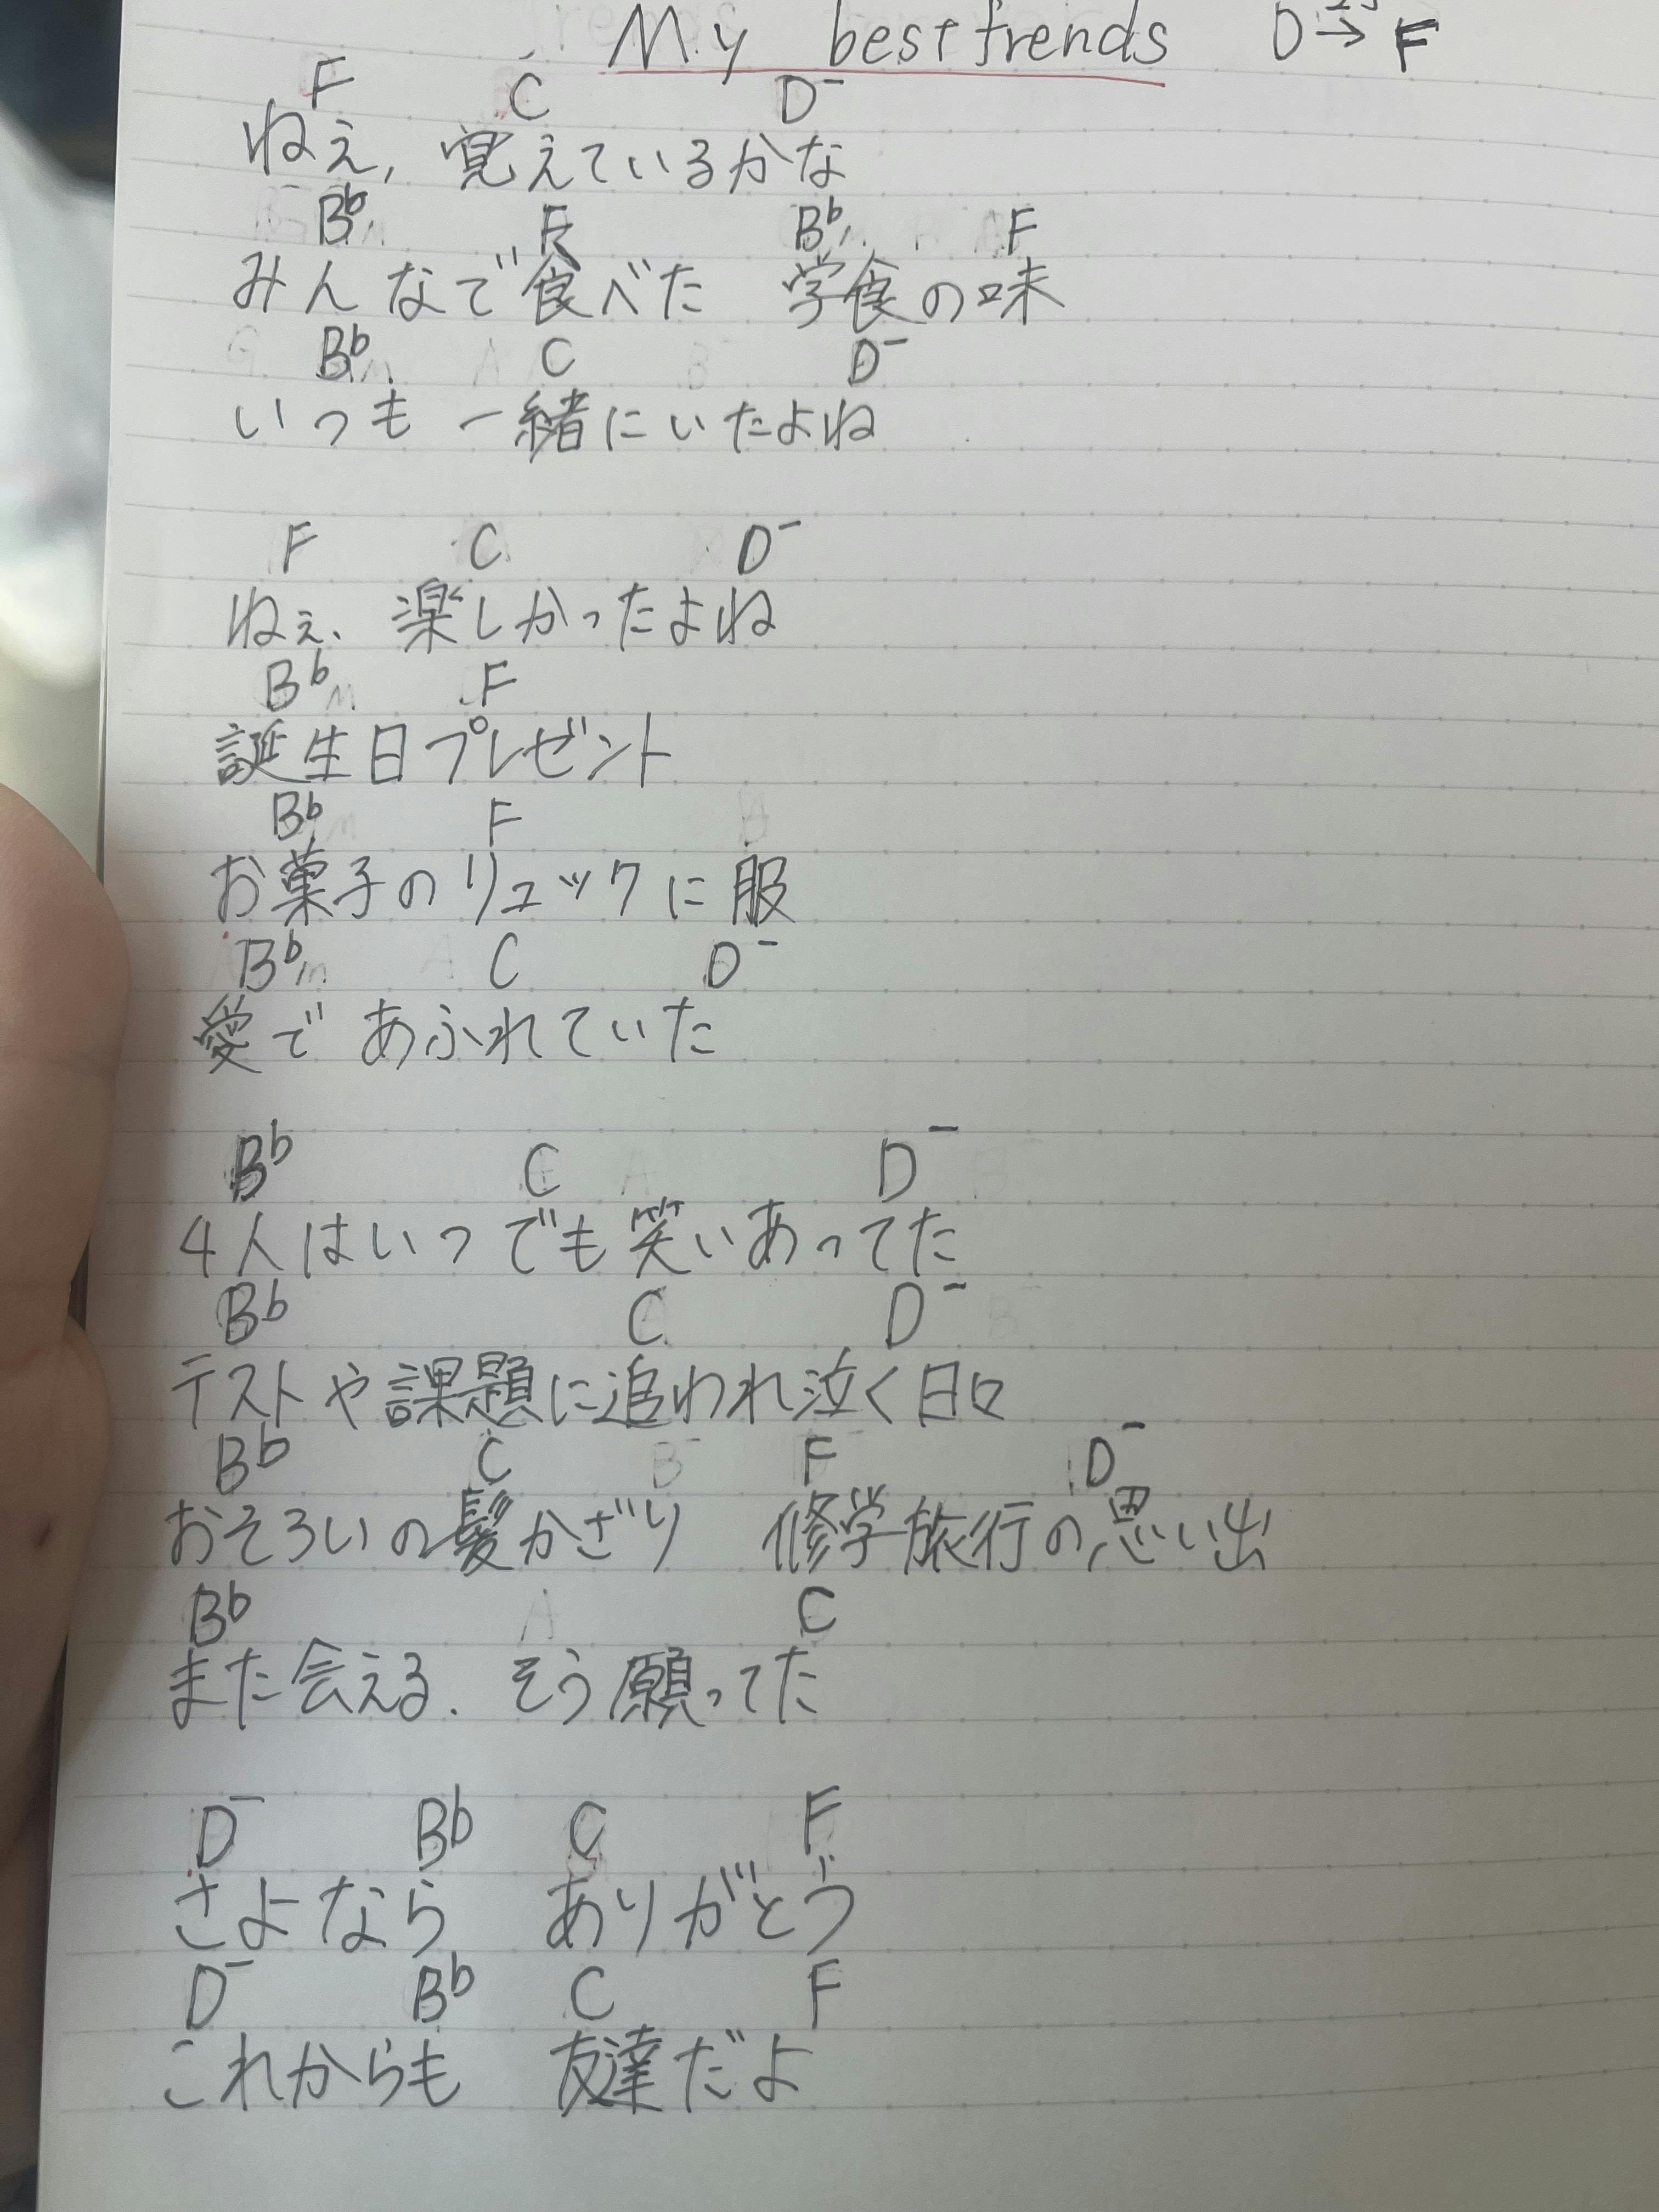 My bestfrends D → F
F C D⁻
ねぇ, 覚えているかな
B♭ F B♭ F
みんなで食べた 学食の味
B♭ C D⁻
いつも 一緒にいたよね
F C D⁻
ねぇ、楽しかったよね
B♭ F
誕生日プレゼント
B♭ F
お菓子のリュックに服
B♭ C D⁻
愛で あふれていた
B♭ C D⁻
4人はいつでも笑いあってた
B♭ C D⁻
テストや課題に追われ泣く日々
B♭ C F D⁻
おそろいの髪かざり 修学旅行の思い出
B♭ C
また会える. そう願ってた
D⁻ B♭ C F
さよなら ありがとう
D⁻ B♭ C F
これからも 友達だよ